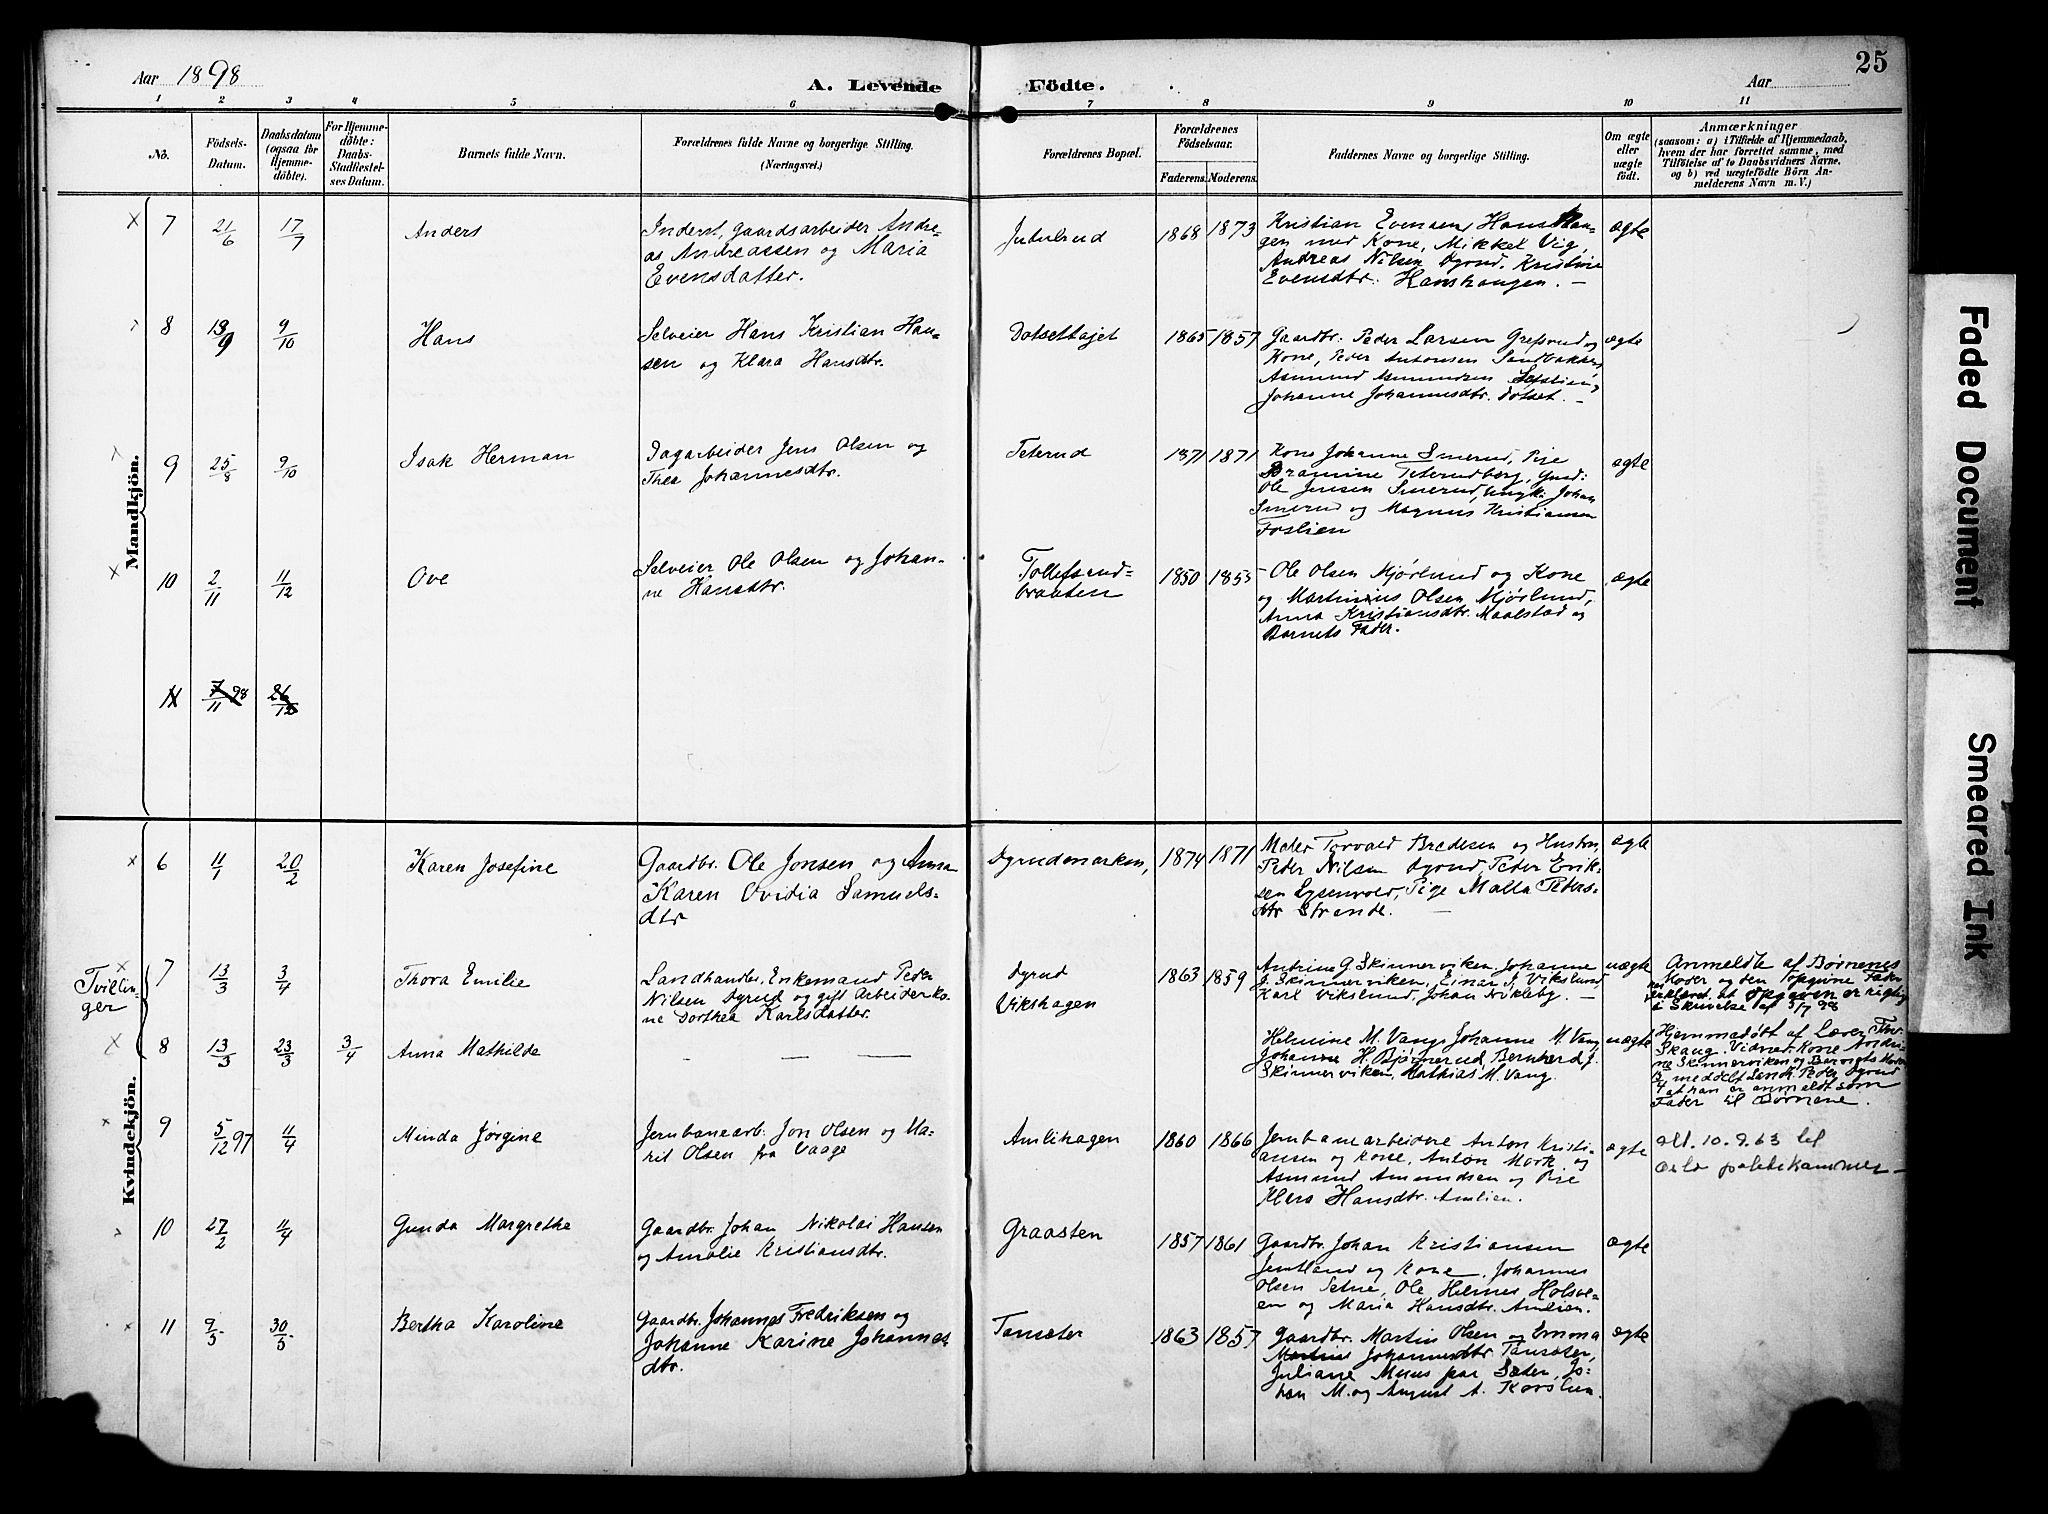 25
Aar 1898
A. Levende Födte.
Aar
1 2 3 4 5 6 7 8 9 10 11
No.
Födsels-
Datum.
Daabsdatum
(ogsaa for
Hjemme-
döbte).
For Hjemme-
döbte:
Daabs-
Stadfæstel-
ses Datum.
Barnets fulde Navn.
Forældrenes fulde Navne og borgerlige Stilling.
(Næringsvei.)
Forældrenes Bopæl.
Forældrenes
Födselsaar.
Faderens. Moderens.
Faddernes Navne og borgerlige Stilling.
Om ægte
eller
uægte
födt.
Anmærkninger
(saasom: a) i Tilfælde af Hjemmedaab,
hvem der har forrettet samme, med
Tilföielse af to Daabsvidners Navne.
og b) ved uægtefödte Börn An-
melderens Navn m. V.)
Mandkjön.
7 21/6 17/7 Anders
Inderst, gaardsarbeider Andre-
as Andreassen og Maria
Evensdatter.
Jutulrud 1868 1873
Kristian Evensen, Hanshau-
gen med Kone, Mikkel Vig,
Andreas Nilsen Dyrud, Kristine
Evensdtr. Hanshaugen. —
ægte
8 13/9 9/10 Hans
Selveier Hans Kristian Han-
sen og Klara Hansdtr.
Dotsethajet 1865 1857
Gaardbr. Peder Larsen Grefsrud og
Kone, Peder Antonsen Sandbakken,
Asmund Asmundsen
Johanne Johannesdtr. Dotset. —
ægte
9 25/8 9/10 Isak Herman
Dagarbeider Jens Olsen og
Thea Johannesdtr.
Teterud 1871 1871
Kone Johanne Smerud, Pige
Bramine Teterudberg, Ynd:
Ole Jensen Smerud, Ungk. Johan
Smerud og Magnus Kristiansen
Foslien
ægte
10 2/11 11/12 Ove
Selveier Ole Olsen og Johan-
ne Hansdtr.
Tollefsrud-
braaten 1850 1855
Ole Olsen Mjørlund og Kone
og Martinius Olsen Mjørlund,
Anna Kristiansdtr. Maalstad og
Barnets Fader.
ægte
11 7/11 98 26/12
Kvindekjön.
6 11/1 20/2 Karen Josefine
Gaardbr. Ole Jonsen og Anna
Karen Ovidia Samuels-
dtr
Dyrudmarken, 1874 1871
Maler Torvald Bredesen og Hustru,
Peder Nilsen Dyrud, Peder Erik-
sen Lysenvold, Pige Malla Peders-
dtr Strande. —
ægte
Tvillin-
ger
7 13/3 3/4 Thora Emilie
Landhandler, Enkemand Peder
Nilsen Dyrud og gift Arbeiderko-
ne Dorthea Karlsdatter.
Dyrud
Vikshagen 1863 1859
Andrine G. Skinnerviken, Johanne
J. Skinnerviken, Einar J. Vikslund
Karl Vikslund, Johan Nikleby. —
uægte
Anmeldt af Børnenes
Moder og den Opgivne Fader
erklæret, at Opgaven er rigtig
i Skrivelse af 3/7 98
8 13/3 23/3 3/4 Anna Mathilde
— — —
Helmine M. Vang, Johanne M. Vang
Johanne H. Bjørnerud, Bernhard J.
Skinnerviken, Mathias M. Vang.
uægte
Hjemmedøbt af Lærer Thv.
Skaug. Vidner: Kone Andri-
ne Skinnerviken og Barnets Moder
3/4 meddelt Landh. Peder Dyrud
at han er anmeldt som
Fader til Børnene.
9 5/12 97 11/4 Minda Jørgine
Jernbanearb. Jon Olsen og Ma-
rit Olsen fra Vaage
Amlihagen 1860 1866
Jernbanearbeiderne Anton Kristi-
ansen og Kone, Anton Mork og
Asmund Amundsen og Pige
Klara Hansdtr. Amlien.
ægte
Att. 10.9.63 til
Oslo politikammer —
10 27/2 11/4 Gunda Margrethe
Gaardbr. Johan Nikolai Hansen
og Amalie Kristiansdtr.
Graasten 1857 1861
Gaardbr. Johan Kristiansen
Jemtland og Kone. Johannes
Olsen Setne, Ole Helmes Holsve-
en og Maria Hansdtr. Amlien.
ægte
11 9/5 30/5 Bertha Karoline
Gaardbr. Johannes Fredriksen og
Johanne Karine Johannes-
dtr.
Tansæter 1863 1857
Gaardbr. Martin Olsen og Emma
Johannesdtr Tansæter,
Juliane Muus paa Sæter, Jo-
han M. og August A. Korslien.
ægte
Faded Document
Smeared Ink